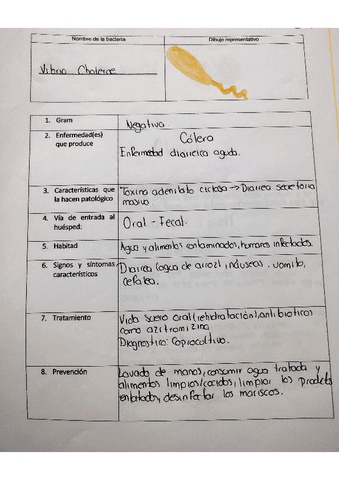 Nombre de la bacteria
Dibujo representativo
Vibrio Cholerae
1. Gram
Negativo
2. Enfermedad(es)
que produce
Cólera
Enfermedad diarreica aguda.
3. Características que
la hacen patológico
Toxina adenilato ciclasa → Diarrea secretoria
masiva.
4. Vía de entrada al
huésped:
Oral - Fecal.
5. Habitad
Agua y alimentos contaminados, humanos infectados.
6. Signos y síntomas
característicos
Diarrea (agua de arroz), náuseas, vomito,
cefalea.
7. Tratamiento
Vida Suero Oral (rehidratación), antibióticos
como azitromizina
Diagnostico: Coprocultivo.
8. Prevención
Lavado de manos, consumir agua tratada y
alimentos limpios/cocidos, limpiar los productos
enlatados, desinfectar los mariscos.